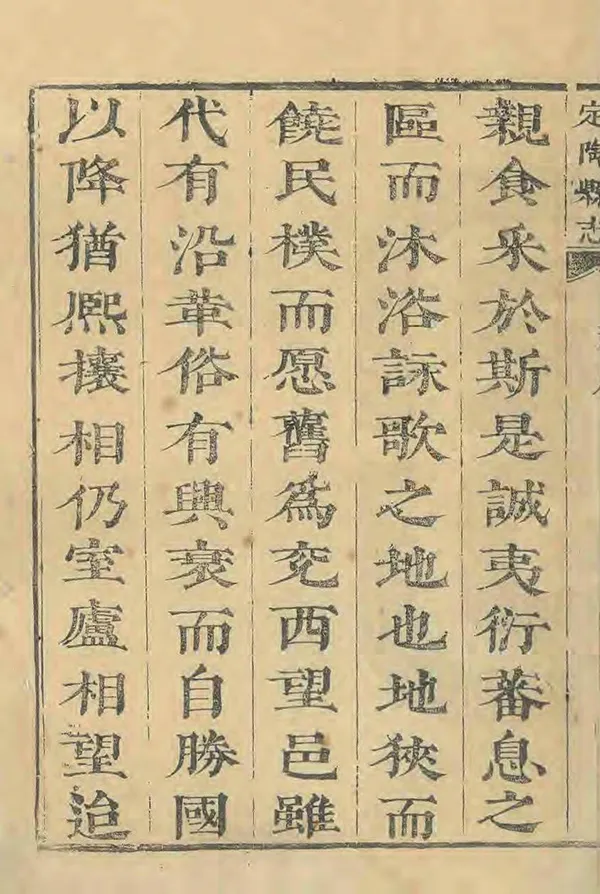 定陶縣志
親食采於斯是誠夷衍蕃息之
區而沐浴詠歌之地也地狹而
饒民樸而愿舊爲兖西望邑雖
代有沿革俗有興衰而自勝國
以降猶熙攘相仍室廬相望迨